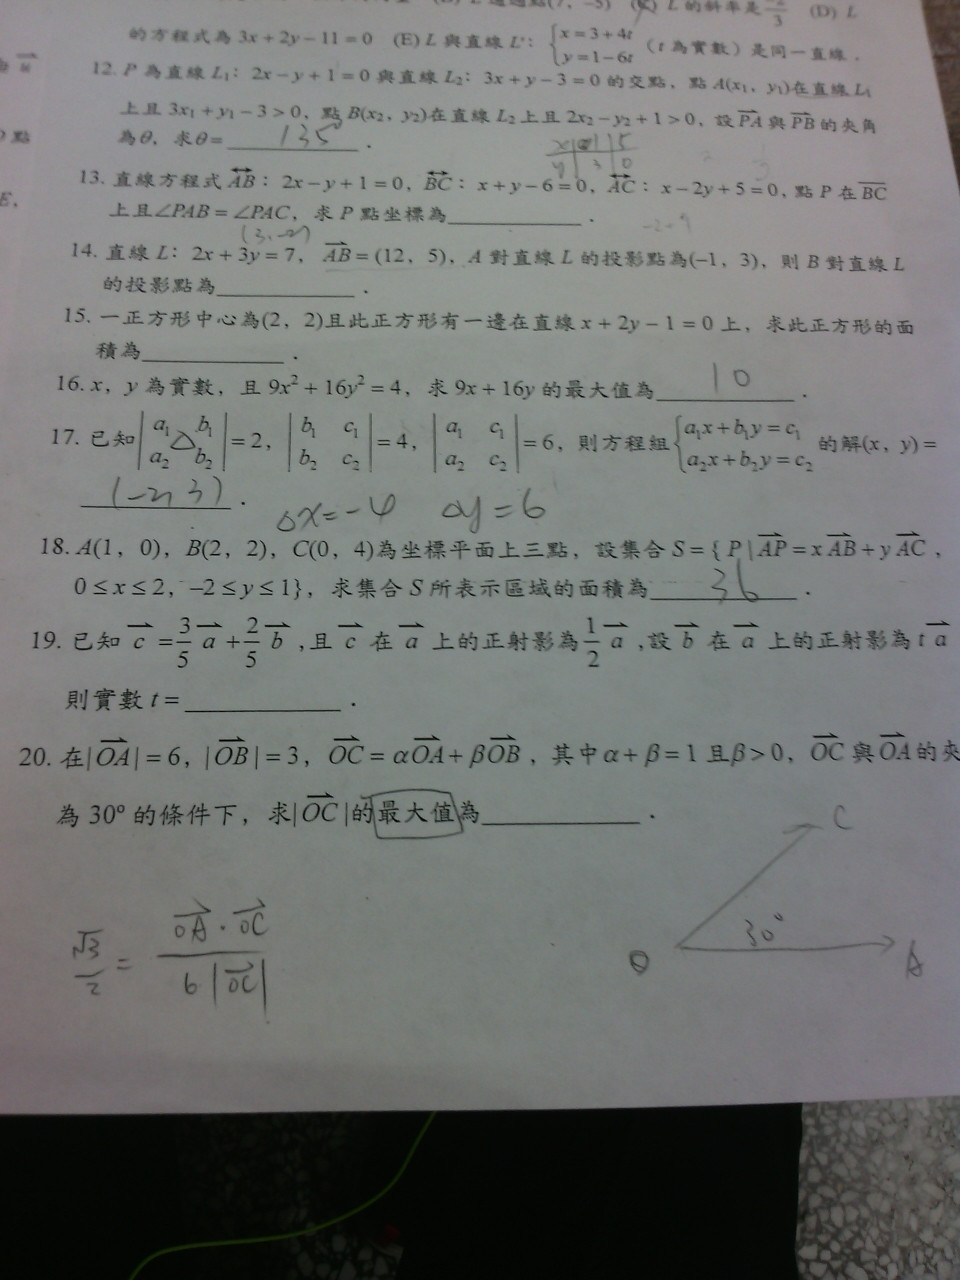 L 的斜率是 -2/3 (D) L
的方程式為 3x + 2y − 11 = 0 (E) L 與直線 L': { x = 3 + 4t
y = 1 − 6t (t 為實數) 是同一直線．
12. P 為直線 L₁：2x − y + 1 = 0 與直線 L₂：3x + y − 3 = 0 的交點，點 A(x₁, y₁)在直線 L₁
上且 3x₁ + y₁ − 3 > 0，點 B(x₂, y₂)在直線 L₂ 上且 2x₂ − y₂ + 1 > 0，設 PA 與 PB 的夾角
為 θ，求 θ = 135° ．
13. 直線方程式 AB：2x − y + 1 = 0，BC：x + y − 6 = 0，AC：x − 2y + 5 = 0，點 P 在 BC
上且∠PAB = ∠PAC，求 P 點坐標為____________．
14. 直線 L：2x + 3y = 7，AB = (12, 5)，A 對直線 L 的投影點為(−1, 3)，則 B 對直線 L
的投影點為____________．
15. 一正方形中心為(2, 2)且此正方形有一邊在直線 x + 2y − 1 = 0 上，求此正方形的面
積為____________．
16. x，y 為實數，且 9x² + 16y² = 4，求 9x + 16y 的最大值為 10 ．
17. 已知 | a₁ b₁ | = 2，| b₁ c₁ | = 4，| a₁ c₁ | = 6，則方程組 { a₁x + b₁y = c₁ 的解(x, y) =
△
| a₂ b₂ | | b₂ c₂ | | a₂ c₂ | a₂x + b₂y = c₂
(−2, 3) ．
△x = −4 △y = 6
18. A(1, 0)，B(2, 2)，C(0, 4)為坐標平面上三點，設集合 S = { P | AP = x AB + y AC，
0 ≤ x ≤ 2，−2 ≤ y ≤ 1}，求集合 S 所表示區域的面積為 36 ．
19. 已知 c = 3/5 a + 2/5 b ,且 c 在 a 上的正射影為 1/2 a ,設 b 在 a 上的正射影為 t a
則實數 t = ____________．
20. 在|OA| = 6，|OB| = 3，OC = αOA + βOB，其中 α + β = 1 且 β > 0，OC 與 OA 的夾
為 30° 的條件下，求|OC|的最大值為____________．
C
30°
O
A
√3/2 = OA · OC / 6|OC|